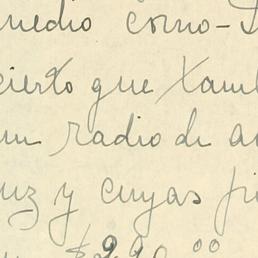 medio como-
cierto que Tam
un radio de a
uz y cuyas pi
$290.00